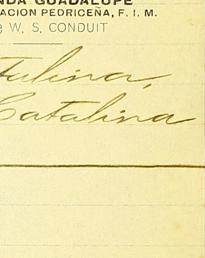 NDA GUADALUPE
ACION PEDRICEÑA, F. I. M.
W. S. CONDUIT
talina,
Catalina